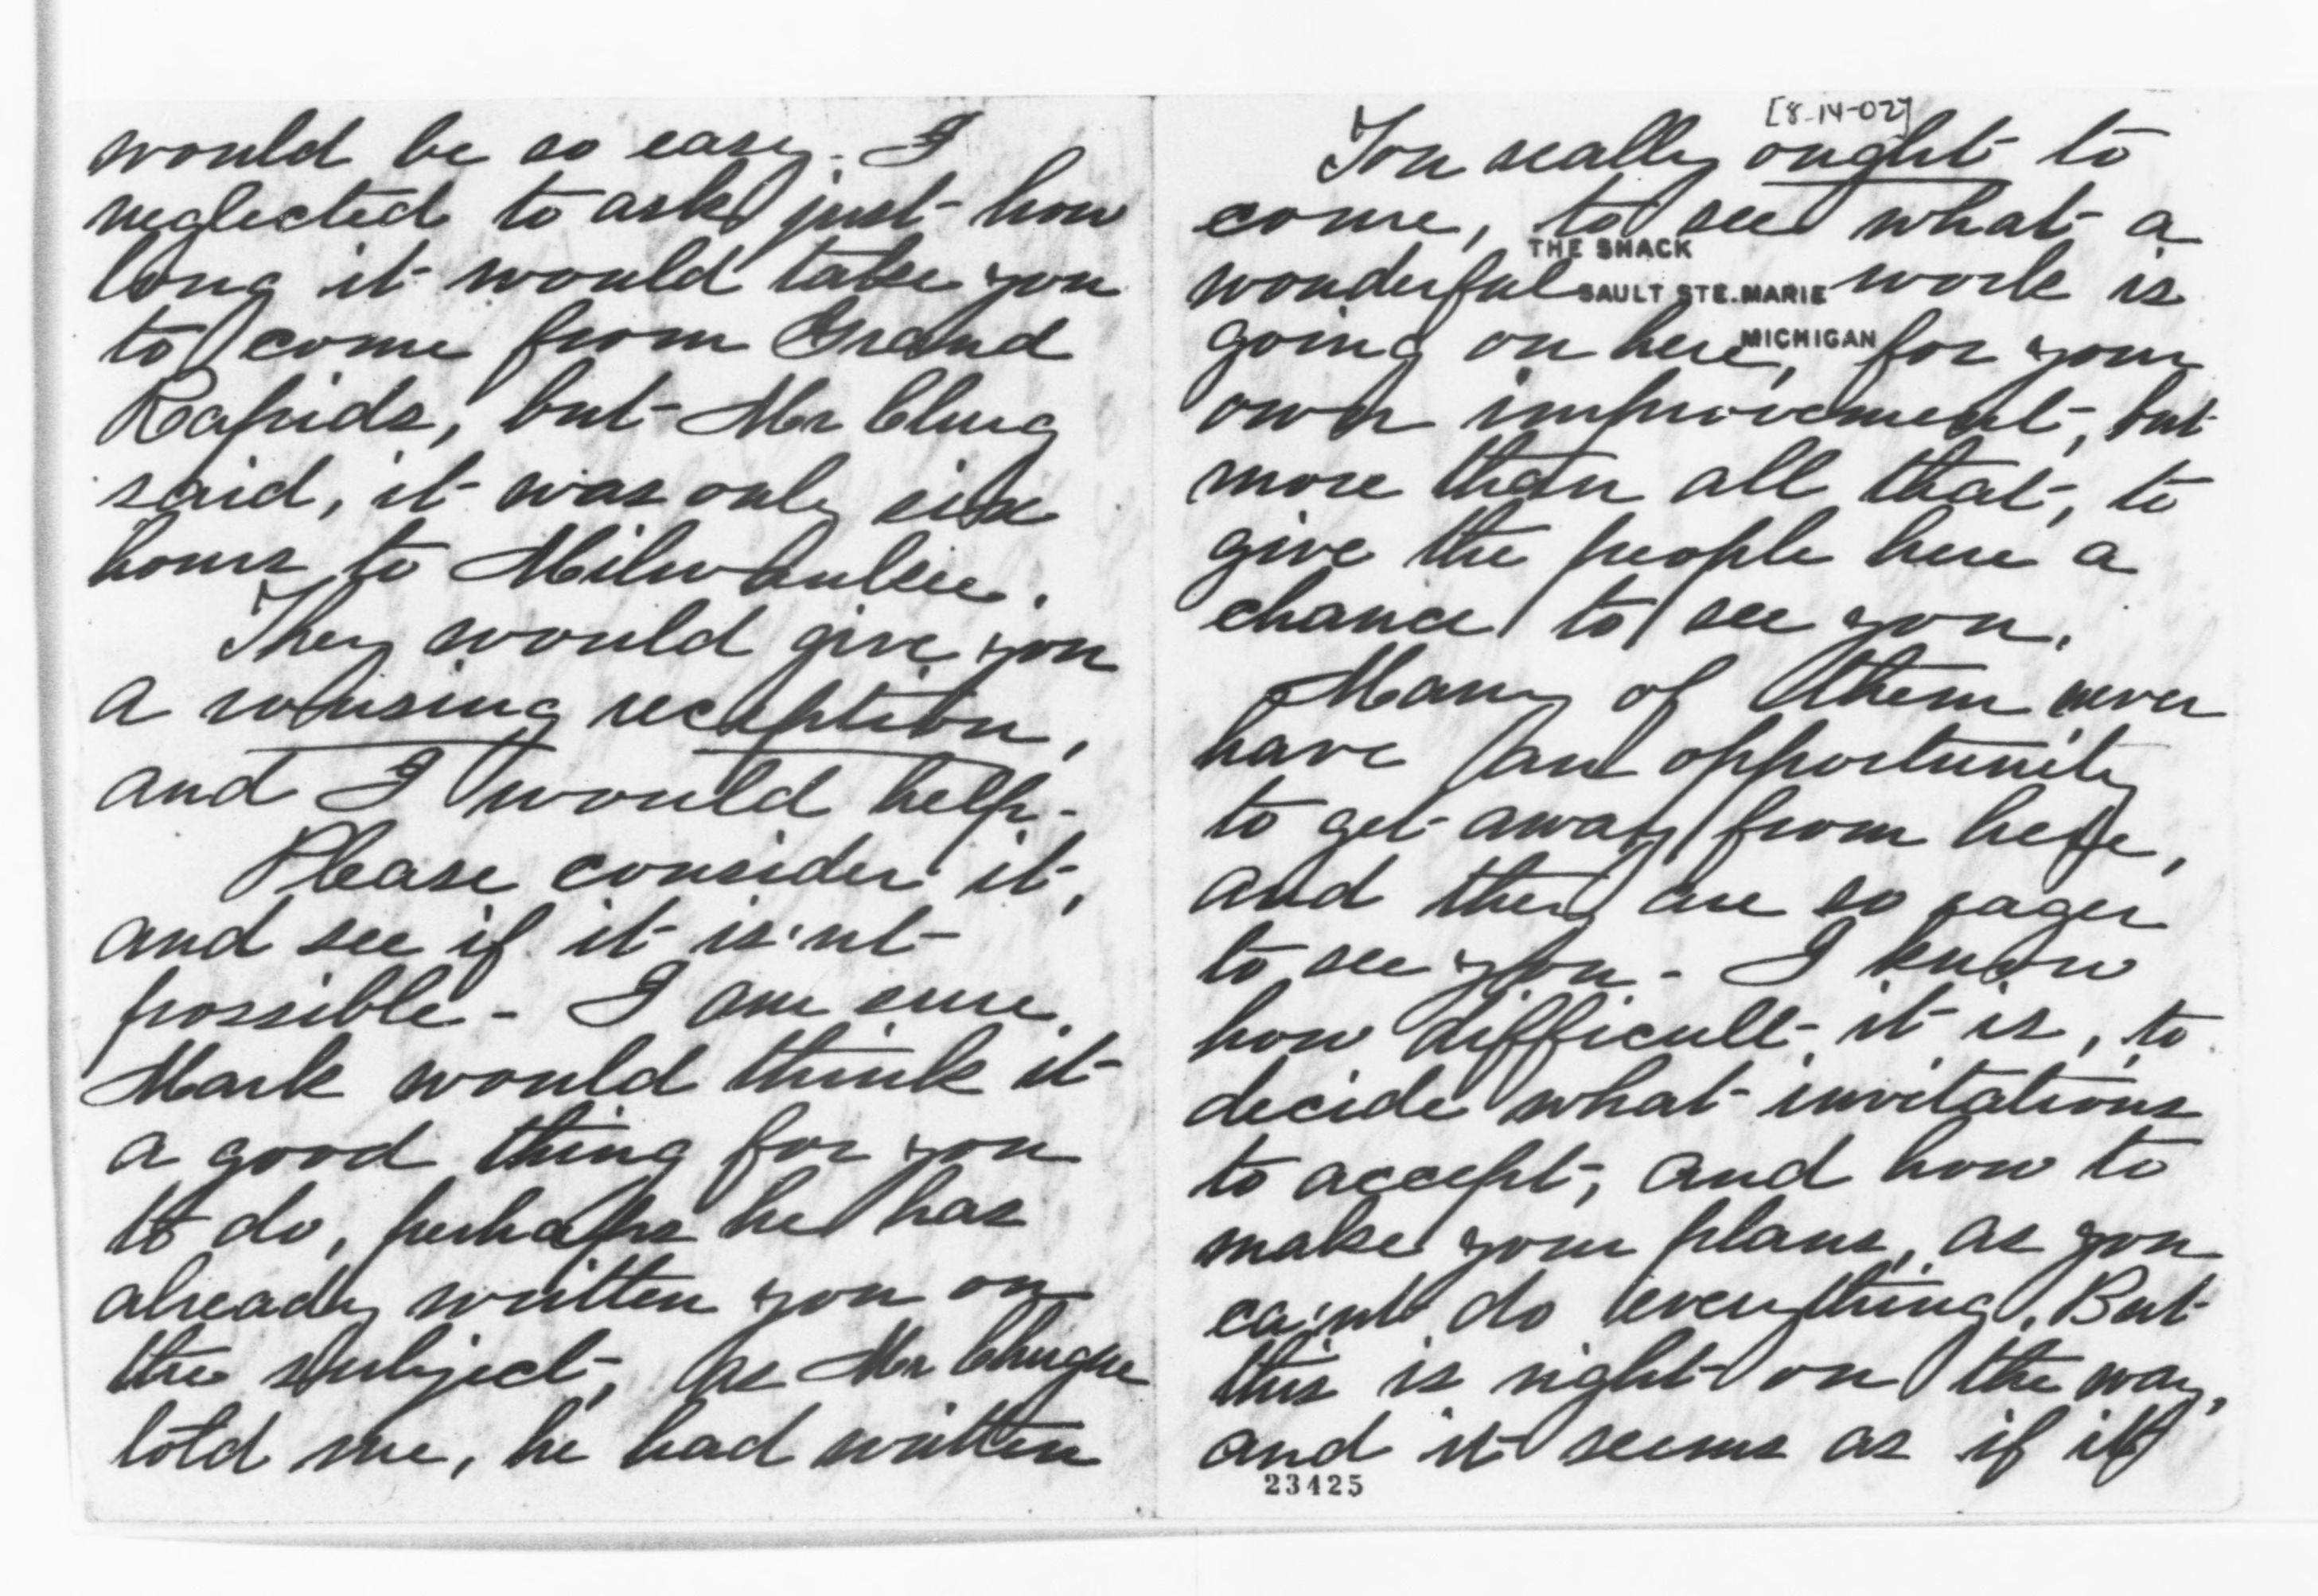 would be so easy. I
neglected to ask just how
long it would take you
to come from Grand
Rapids, but Mr Clurg
said, it was only six
hours to Milwaukee.
They would give you
a rousing reception,
and I would help-
Please consider it,
and see if it is'nt
possible - I am sure
Mark would think it
a good thing for you
to do, perhaps he has
already written you on
the subject, as Mr Clurgue
told me, he had written
[8-14-02]
You really ought to
come, to see what a
THE SHACK
wonderful work is
SAULT STE. MARIE
going on here, for your
MICHIGAN
own improvement, but
more than all that, to
give the people here a
chance to see you.
Many of them never
have an opportunity
to get away from here,
and they are so eager
to see you - I know
how difficult it is, to
decide what invitations
to accept, and how to
make your plans, as you
ca'nt do everything. But
this is right on the way,
and it seems as if it
23425